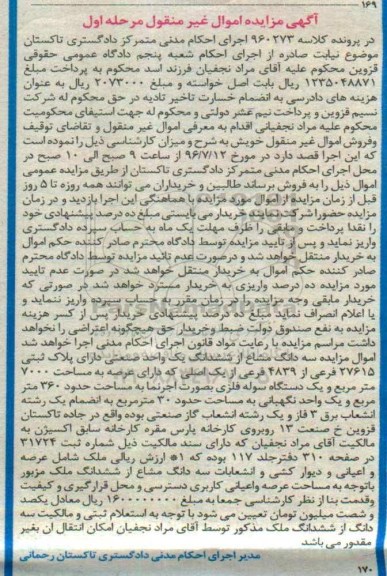 ۱۶۹
آگهی مزایده اموال غیر منقول مرحله اول
در پرونده کلاسه ۹۶۰۲۷۳ اجرای احکام مدنی متمرکز دادگستری تاکستان
موضوع نیابت صادره از اجرای احکام شعبه پنجم دادگاه عمومی حقوقی
قزوین محکوم علیه آقای مراد نجفیان فرزند اسد محکوم به پرداخت مبلغ
۱۲۳۵۰۴۸۸۷۱ ریال بابت اصل خواسته و مبلغ ۲۰۷۳۰۰۰ ریال به عنوان
هزینه های دادرسی به انضمام خسارت تاخیر تادیه در حق محکوم له شرکت
نسیم قزوین و پرداخت نیم عشر دولتی و محکوم له جهت استیفای محکومیت
محکوم علیه مراد نجفیانی اقدام به معرفی اموال غیر منقول و تقاضای توقیف
وفروش اموال غیر منقول خویش به شرح و میزان کارشناسی ذیل را نموده است
که این اجرا قصد دارد در مورخ ۹۶/۷/۱۲ از ساعت ۹ صبح الی ۱۰ صبح در
محل اجرای احکام مدنی متمرکز دادگستری تاکستان از طریق مزایده عمومی
اموال ذیل را به فروش برساند طالبین و خریداران می توانند همه روزه تا ۵ روز
قبل از زمان مزایده از اموال مورد مزایده با هماهنگی این اجرا بازدید و در زمان
مزایده حضور خریدار می بایستی مبلغ ده درصد پیشنهادی خود
را نقدا پرداخت و مابقی را ظرف مهلت یک ماه به حساب سپرده دادگستری
واریز نماید و پس از تایید مزایده توسط دادگاه محترم صادر کننده حکم اموال
به خریدار منتقل خواهد شد و درصورت عدم تائید مزایده توسط دادگاه محترم
صادر کننده حکم اموال به خریدار منتقل نخواهد شد در صورت عدم تایید
مورد مزایده ده درصد واریزی به خریدار مسترد خواهد شد در صورتی که
خریدار مابقی وجه مزایده را در زمان مقرر به حساب سپرده واریز ننماید و
یا اعلام انصراف نماید مبلغ ده درصد پیشنهادی خریدار پس از کسر هزینه
مزایده به نفع صندوق دولت ضبط وخریدار حق هیچگونه اعتراضی را نخواهد
داشت مراسم مزایده با رعایت مواد قانون اجرای احکام مدنی اجرا خواهد شد
اموال مزایده سه دانگ مشاع از ششدانگ یک واحد صنعتی دارای پلاک ثبتی
۲۷۶۱۵ فرعی از ۴۸۳۹ فرعی از یک اصلی که دارای عرصه به مساحت ۷۰۰۰
متر مربع و یک دستگاه سوله فلزی بصورت آجرنما به مساحت حدود ۳۶۰ متر
مربع و یک واحد نگهبانی به مساحت حدود ۳۰ مترمربع به انضمام یک رشته
انشعاب برق ۳ فاز و یک رشته انشعاب گاز صنعتی بوده واقع در جاده تاکستان
قزوین خ صنعت ۱۳ روبروی کارخانه پارس مقره کارخانه سابق اکسیژن به
مالکیت آقای مراد نجفیان که دارای سند مالکیت ذیل شماره ثبت ۳۱۷۲۴
در صفحه ۳۱۰ دفترجلد ۱۱۷ بوده که ۱* ارزش ریالی ملک شامل عرصه
و اعیانی و دیوار کشی و انشعابات سه دانگ مشاع از ششدانگ ملک مزبور
باتوجه به مساحت عرصه واعیانی کاربری دسترسی و محل قرارگیری و کیفیت
وقدمت بنا از نظر کارشناسی جمعا به مبلغ ۱۶۰۰۰۰۰۰۰۰ ریال معادل یکصد
و شصت میلیون تومان تعیین می شود با توجه به استعلام ثبتی و مالکیت سه
دانگ از ششدانگ ملک مذکور توسط آقای مراد نجفیان امکان انتقال آن بغیر
مقدور می باشد
مدیر اجرای احکام مدنی دادگستری تاکستان رحمانی
۱۷۰